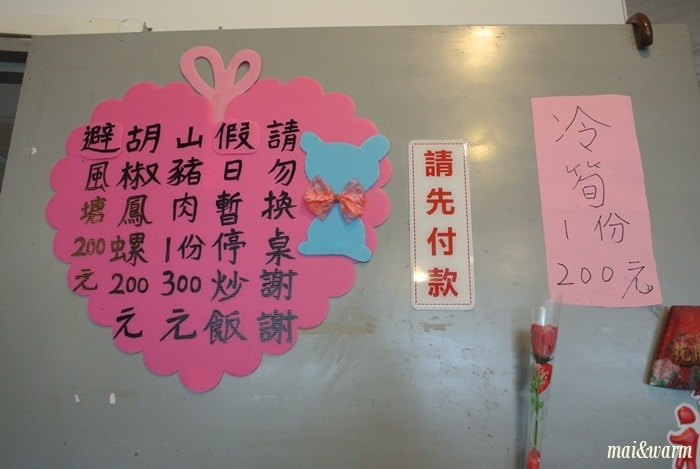 請勿換桌謝謝
假日暫停炒飯
山豬肉1份300元
胡椒鳳螺200元
避風塘200元
請先付款
冷筍
1份
200元
mai&warm